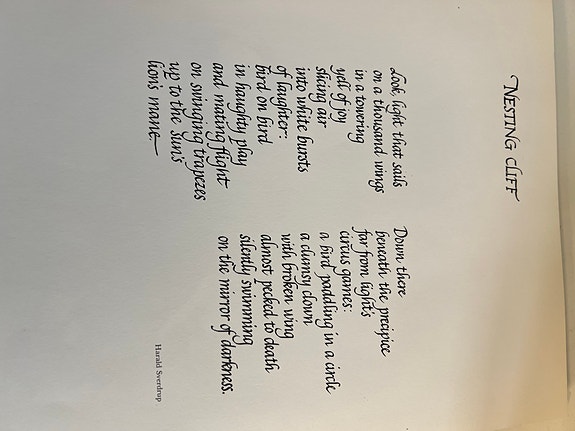 NESTING CLIFF
Look, light that sails
on a thousand wings
in a towering
yell of joy
slicing air
into white bursts
of laughter:
bird on bird
in haughty play
and mating flight
on swinging trapezes
up to the sun's
lion's mane—
Down there
beneath the precipice
far from light's
circus games:
a bird paddling in a circle
a clumsy clown
with broken wing
almost pecked to death
silently swimming
on the mirror of darkness.
Harald Sverdrup